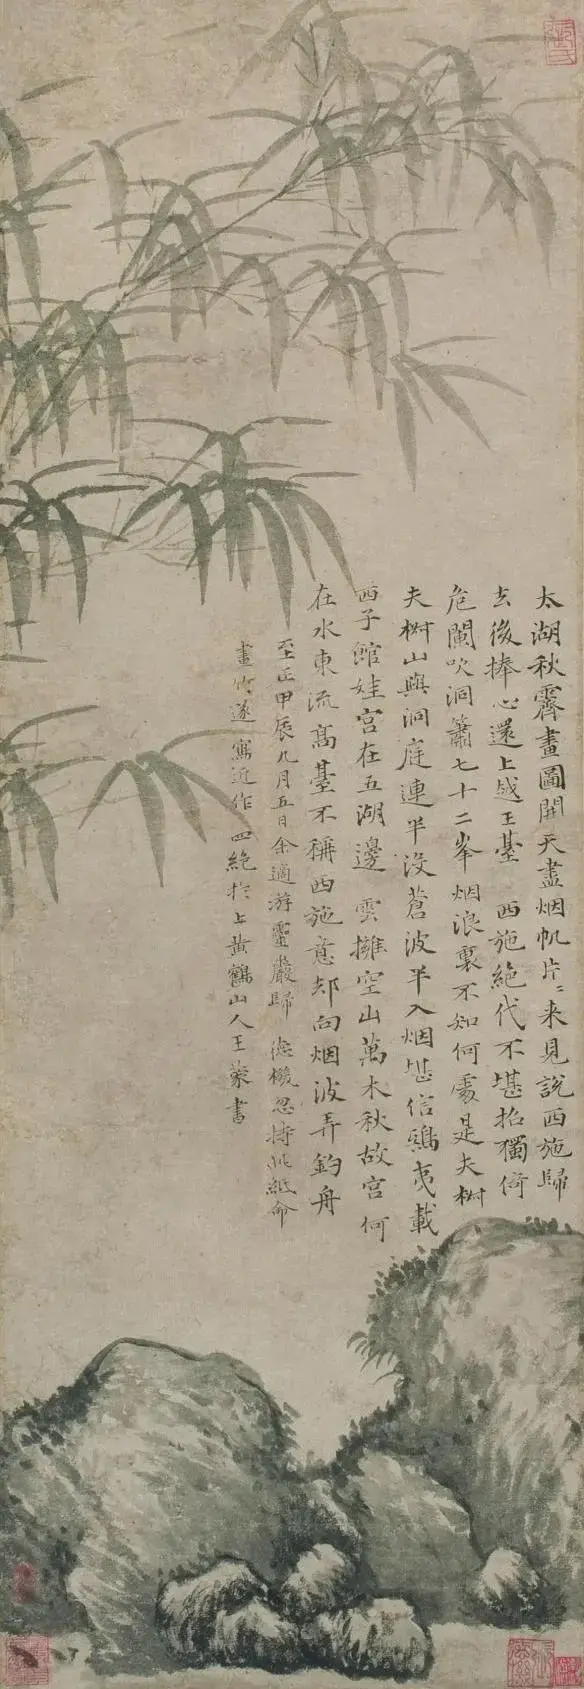 太湖秋霽畫圖開天盡烟帆片〻来見說西施歸
去後捧心還上越王臺　西施絶代不堪招獨倚
危闌吹洞簫七十二峯烟浪裏不知何處是夫椒
夫椒山與洞庭連半沒蒼波半入烟堪信鴟夷載
西子館娃宮在五湖邊　雲擁空山萬木秋故宮何
在水東流髙臺不稱西施意却向烟波弄釣舟
至正甲辰九月五日余適游靈巖歸　徳機忽持此紙命
畫竹遂寫近作四絶扵上黃鶴山人王蒙書